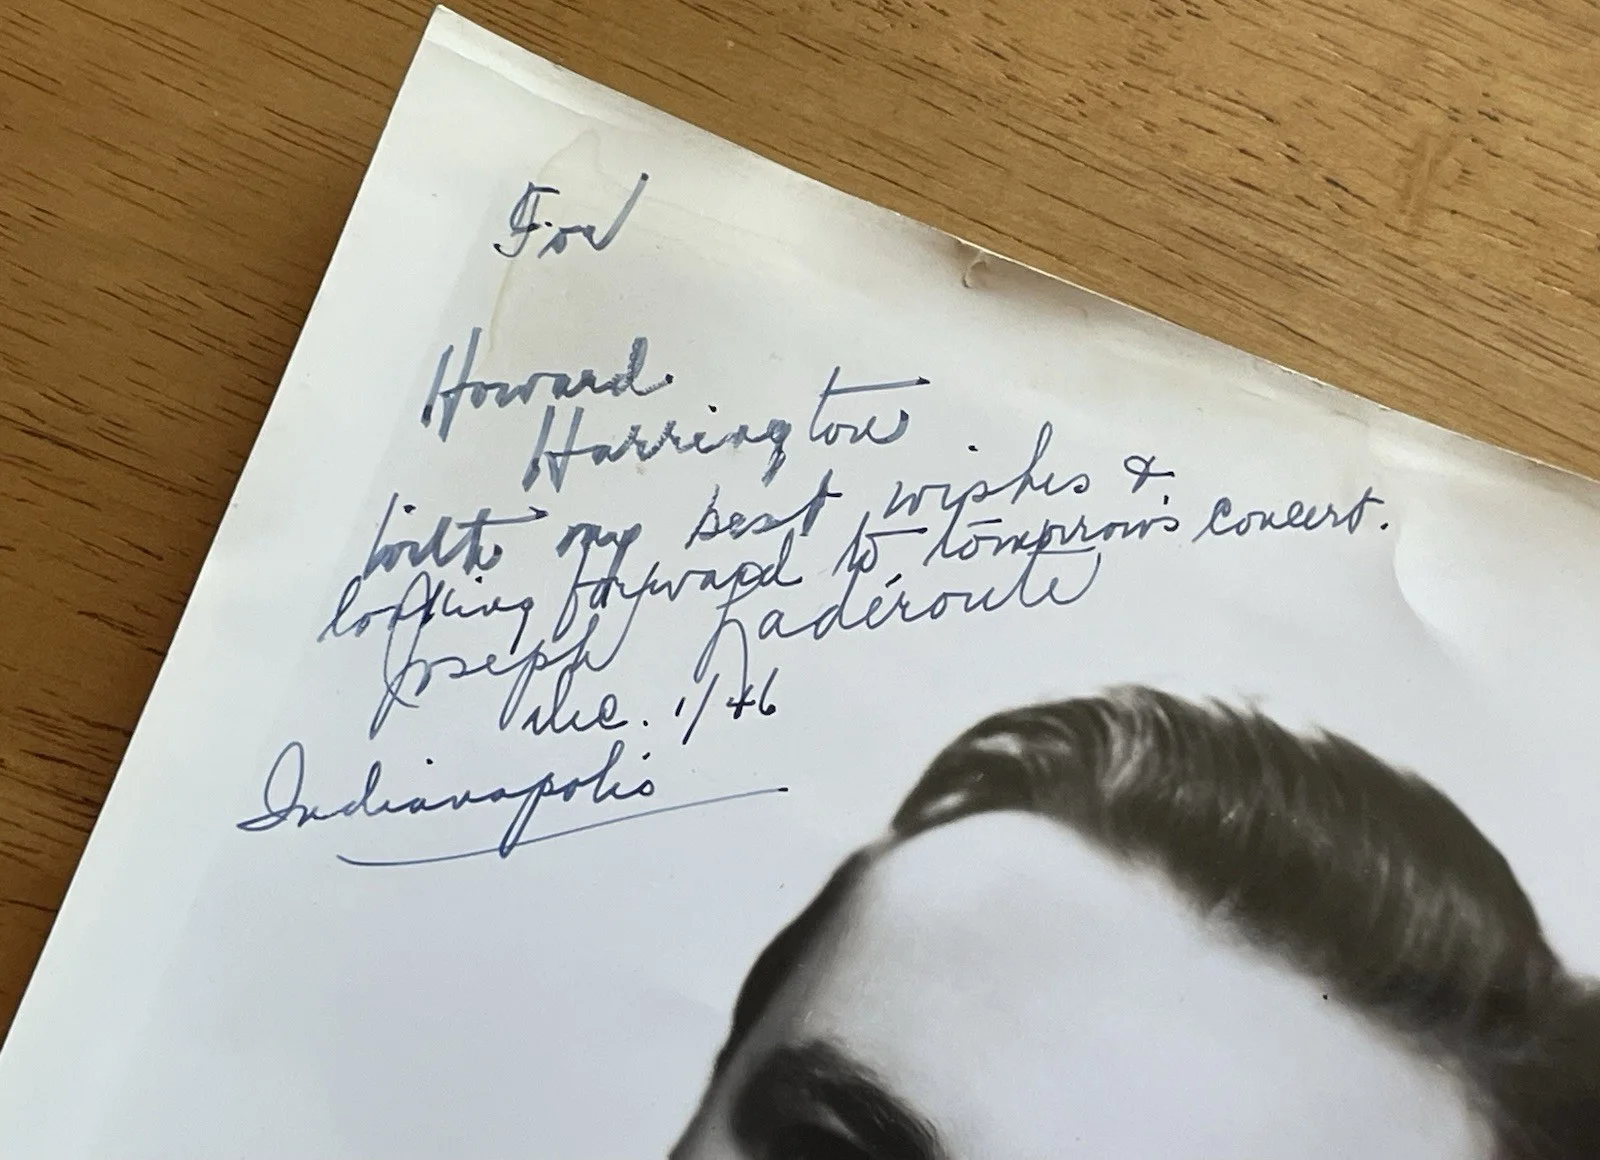 For
Howard
Harrington
with my best wishes &
looking forward to tomorrow's concert.
Joseph Ladéroute
Dec. 1/46
Indianapolis